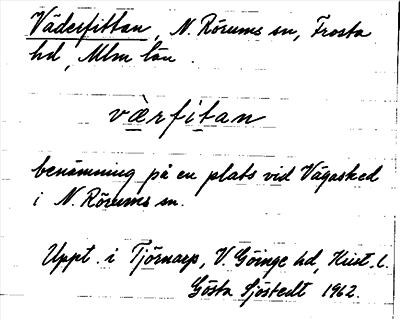 Väderfittan, N. Rörums sn, Frosta
hd, Mlm län
værfitan
benämning på en plats vid Vägasked
i N. Rörums sn.
Uppt. i Tjörnarp, V. Göinge hd, Krist. l.
Gösta Sjöstedt 1962.